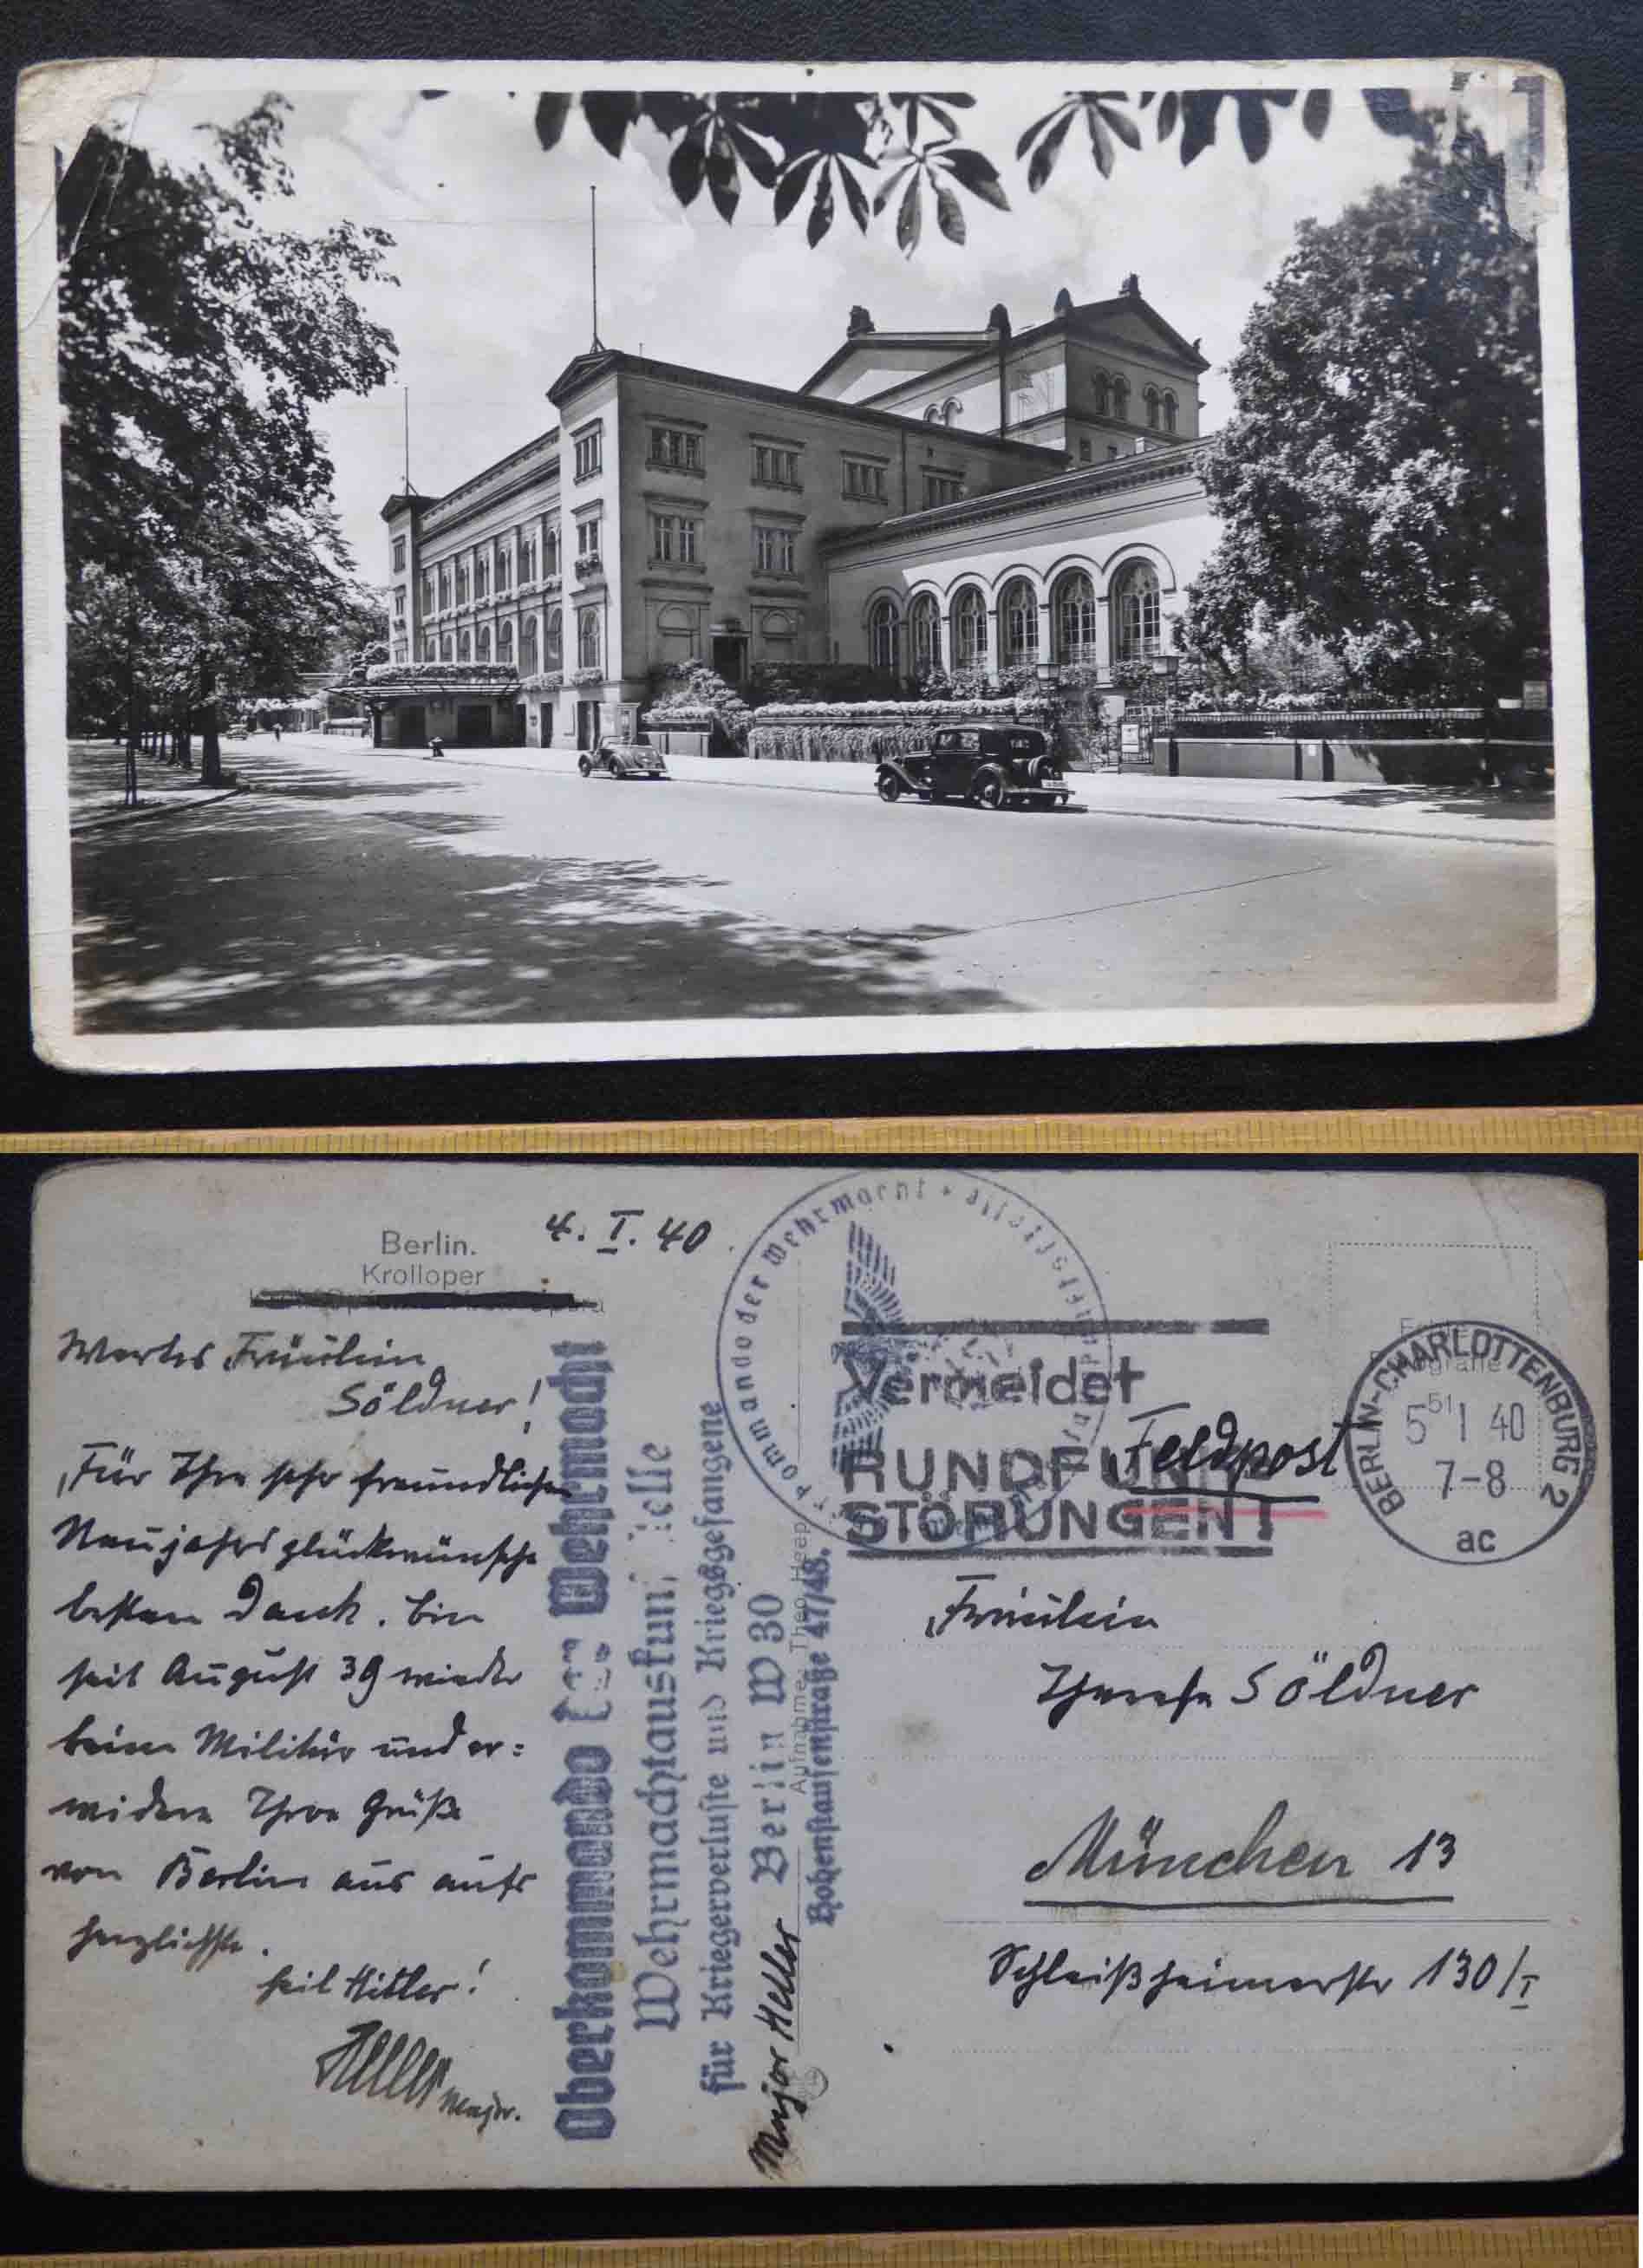 Berlin.
Krolloper
4. I. 40.
Wertes Fräulein
Söldner!
Für Ihre sehr freundlichen
Neujahrsglückwünsche
besten Dank. Bin
seit August 39 wieder
beim Militär und er=
widere Ihre Grüße
von Berlin aus aufs
herzlichste.
Heil Hitler!
Heller Major.
Oberkommando der Wehrmacht
Wehrmachtauskunftstelle
für Kriegerverluste und Kriegsgefangene
Berlin W 30
Hohenstaufenstraße 47/48.
Major Heller
Aufnahme Theo Heep
Oberkommando der Wehrmacht
Vermeidet
RUNDFUNK
STÖRUNGEN!
Feldpost
BERLIN-CHARLOTTENBURG 2
5 1 40
7-8
ac
Fräulein
Therese Söldner
München 13
Schleißheimerstr 130/I